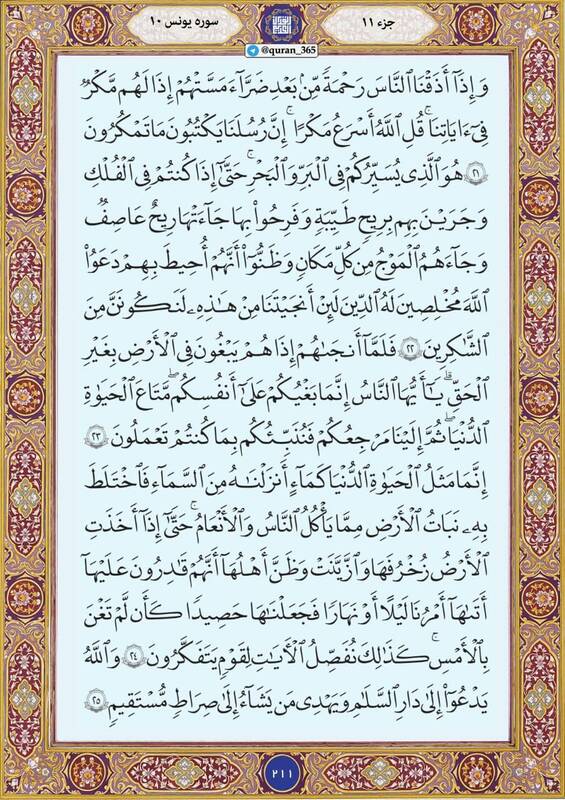 جزء ۱۱
سوره یونس ۱۰
@quran_365
وَإِذَآ أَذَقْنَا ٱلنَّاسَ رَحْمَةً مِّنۢ بَعْدِ ضَرَّآءَ مَسَّتْهُمْ إِذَا لَهُم مَّكْرٌ
فِىٓ ءَايَاتِنَا ۚ قُلِ ٱللَّهُ أَسْرَعُ مَكْرًا ۚ إِنَّ رُسُلَنَا يَكْتُبُونَ مَا تَمْكُرُونَ
۲۱ هُوَ ٱلَّذِى يُسَيِّرُكُمْ فِى ٱلْبَرِّ وَٱلْبَحْرِ ۖ حَتَّىٰٓ إِذَا كُنتُمْ فِى ٱلْفُلْكِ
وَجَرَيْنَ بِهِم بِرِيحٍ طَيِّبَةٍ وَفَرِحُوا۟ بِهَا جَآءَتْهَا رِيحٌ عَاصِفٌ
وَجَآءَهُمُ ٱلْمَوْجُ مِن كُلِّ مَكَانٍ وَظَنُّوٓا۟ أَنَّهُمْ أُحِيطَ بِهِمْ دَعَوُا۟
ٱللَّهَ مُخْلِصِينَ لَهُ ٱلدِّينَ لَئِنْ أَنجَيْتَنَا مِنْ هَـٰذِهِۦ لَنَكُونَنَّ مِنَ
ٱلشَّاكِرِينَ ۲۲ فَلَمَّآ أَنجَىٰهُمْ إِذَا هُمْ يَبْغُونَ فِى ٱلْأَرْضِ بِغَيْرِ
ٱلْحَقِّ ۗ يَـٰٓأَيُّهَا ٱلنَّاسُ إِنَّمَا بَغْيُكُمْ عَلَىٰٓ أَنفُسِكُم ۖ مَّتَاعَ ٱلْحَيَوٰةِ
ٱلدُّنْيَا ۖ ثُمَّ إِلَيْنَا مَرْجِعُكُمْ فَنُنَبِّئُكُم بِمَا كُنتُمْ تَعْمَلُونَ ۲۳
إِنَّمَا مَثَلُ ٱلْحَيَوٰةِ ٱلدُّنْيَا كَمَآءٍ أَنزَلْنَـٰهُ مِنَ ٱلسَّمَآءِ فَٱخْتَلَطَ
بِهِۦ نَبَاتُ ٱلْأَرْضِ مِمَّا يَأْكُلُ ٱلنَّاسُ وَٱلْأَنْعَامُ ۚ حَتَّىٰٓ إِذَآ أَخَذَتِ
ٱلْأَرْضُ زُخْرُفَهَا وَٱزَّيَّنَتْ وَظَنَّ أَهْلُهَآ أَنَّهُمْ قَادِرُونَ عَلَيْهَآ
أَتَىٰهَآ أَمْرُنَا لَيْلًا أَوْ نَهَارًا فَجَعَلْنَـٰهَا حَصِيدًا كَأَن لَّمْ تَغْنَ
بِٱلْأَمْسِ ۚ كَذَٰلِكَ نُفَصِّلُ ٱلْآيَاتِ لِقَوْمٍ يَتَفَكَّرُونَ ۲۴ وَٱللَّهُ
يَدْعُوٓا۟ إِلَىٰ دَارِ ٱلسَّلَامِ وَيَهْدِى مَن يَشَآءُ إِلَىٰ صِرَاطٍ مُّسْتَقِيمٍ ۲۵
۲۱۱